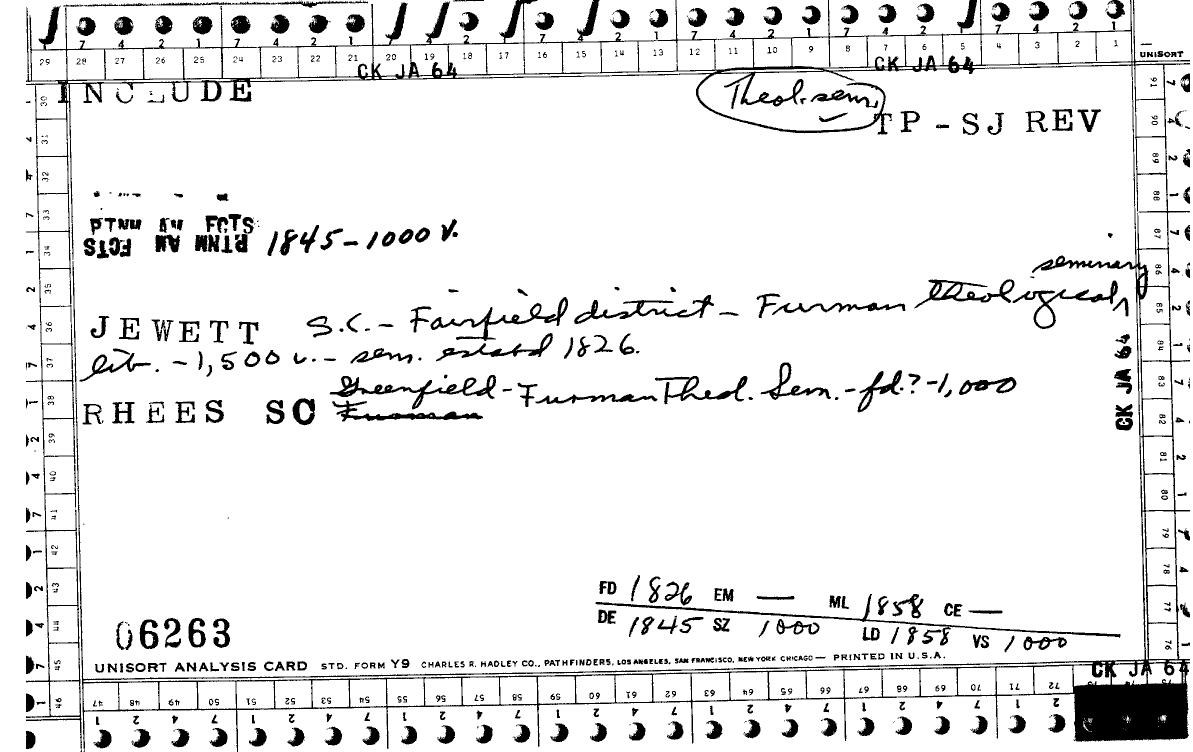 7 4 2 1 7 4 2 1 4 2 7 2 1 7 4 2 1 7 4 2 7 4 2 1
29 28 27 26 25 24 23 22 21 20 19 18 17 16 15 14 13 12 11 10 9 8 7 6 5 4 3 2 1
UNISORT
CK JA 64 CK JA 64
INCLUDE Theol. sem.
TP-SJ REV
PTNM AM FCTS
PTNM AM FCTS 1845-1000 v.
seminary
JEWETT S.C. - Fairfield district - Furman theological
lib. - 1,500 v. - sem. estabd 1826.
RHEES SC Greenfield - Furman Theol. Sem. - fd.? - 1,000
Furman
CK JA 64
FD 1826 EM — ML 1858 CE —
DE 1845 SZ 1000 LD 1858 VS 1000
06263
UNISORT ANALYSIS CARD STD. FORM Y9 CHARLES R. HADLEY CO., PATHFINDERS, LOS ANGELES, SAN FRANCISCO, NEW YORK CHICAGO — PRINTED IN U.S.A.
CK JA 64
47 48 49 50 51 52 53 54 55 56 57 58 59 60 61 62 63 64 65 66 67 68 69 70 71 72
1 2 4 7 1 2 4 7 1 2 4 7 1 2 4 7 1 2 4 7 1 2 4 7 1 2
30 31 32 33 34 35 36 37 38 39 40 41 42 43 44 45 46
91 90 89 88 87 86 85 84 83 82 81 80 79 78 77 76